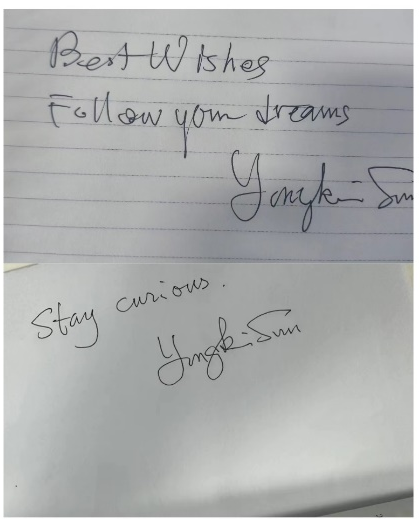 Best Wishes
Follow your dreams
Yongkui Sun
Stay curious.
Yongkui Sun